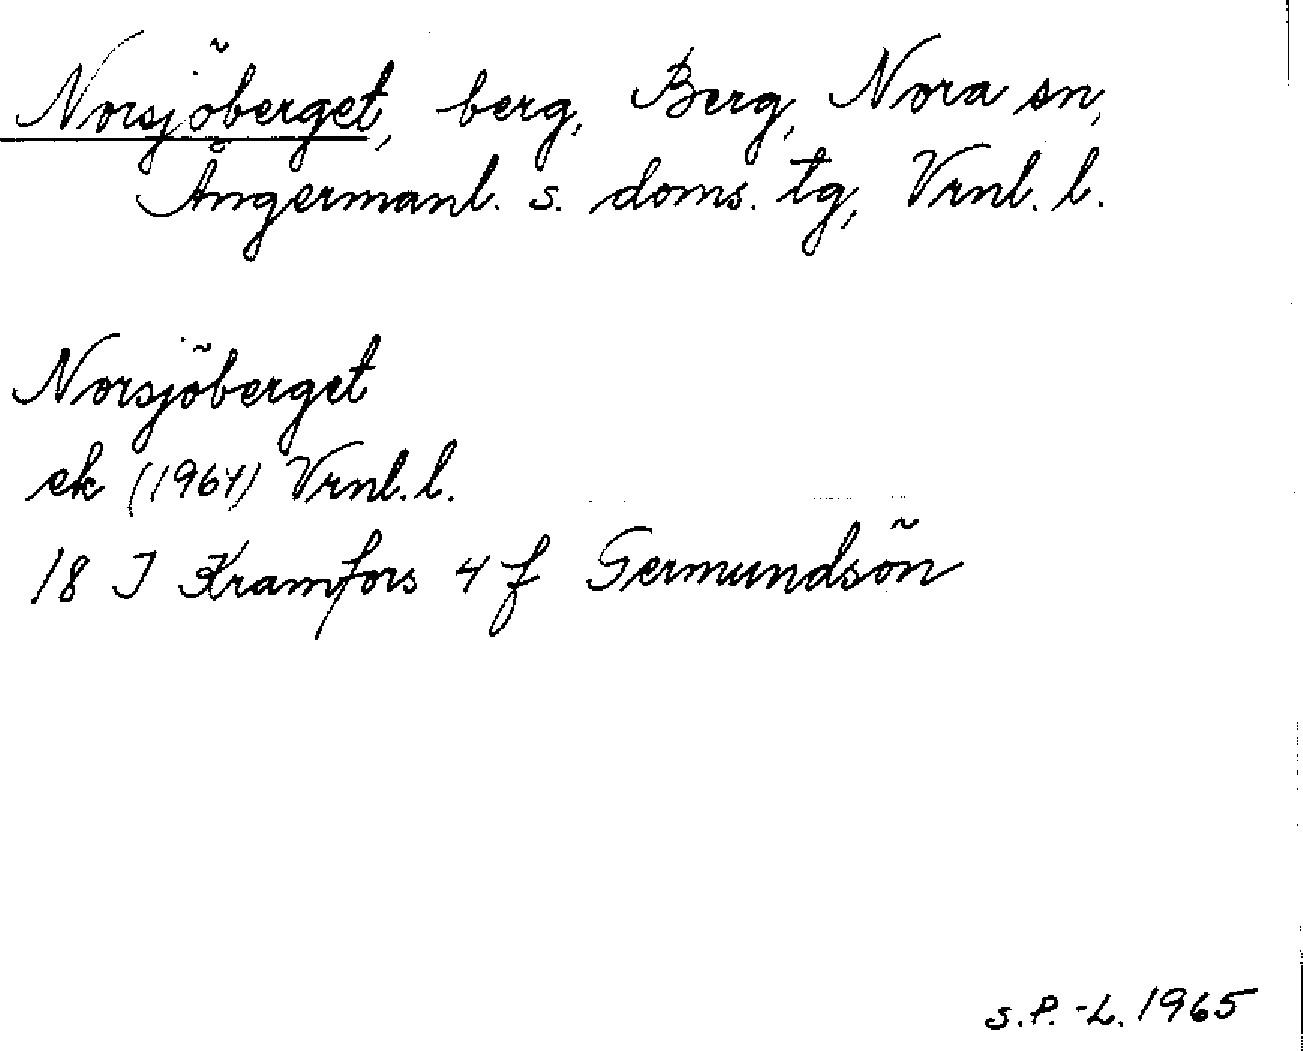 Norsjöberget, berg, Berg, Nora sn,
Ångermanl. s. doms. tg, Vrnl. l.
Norsjöberget
ek (1964) Vrnl. l.
18 I Kramfors 4 f Germundsön
S.P.-L. 1965